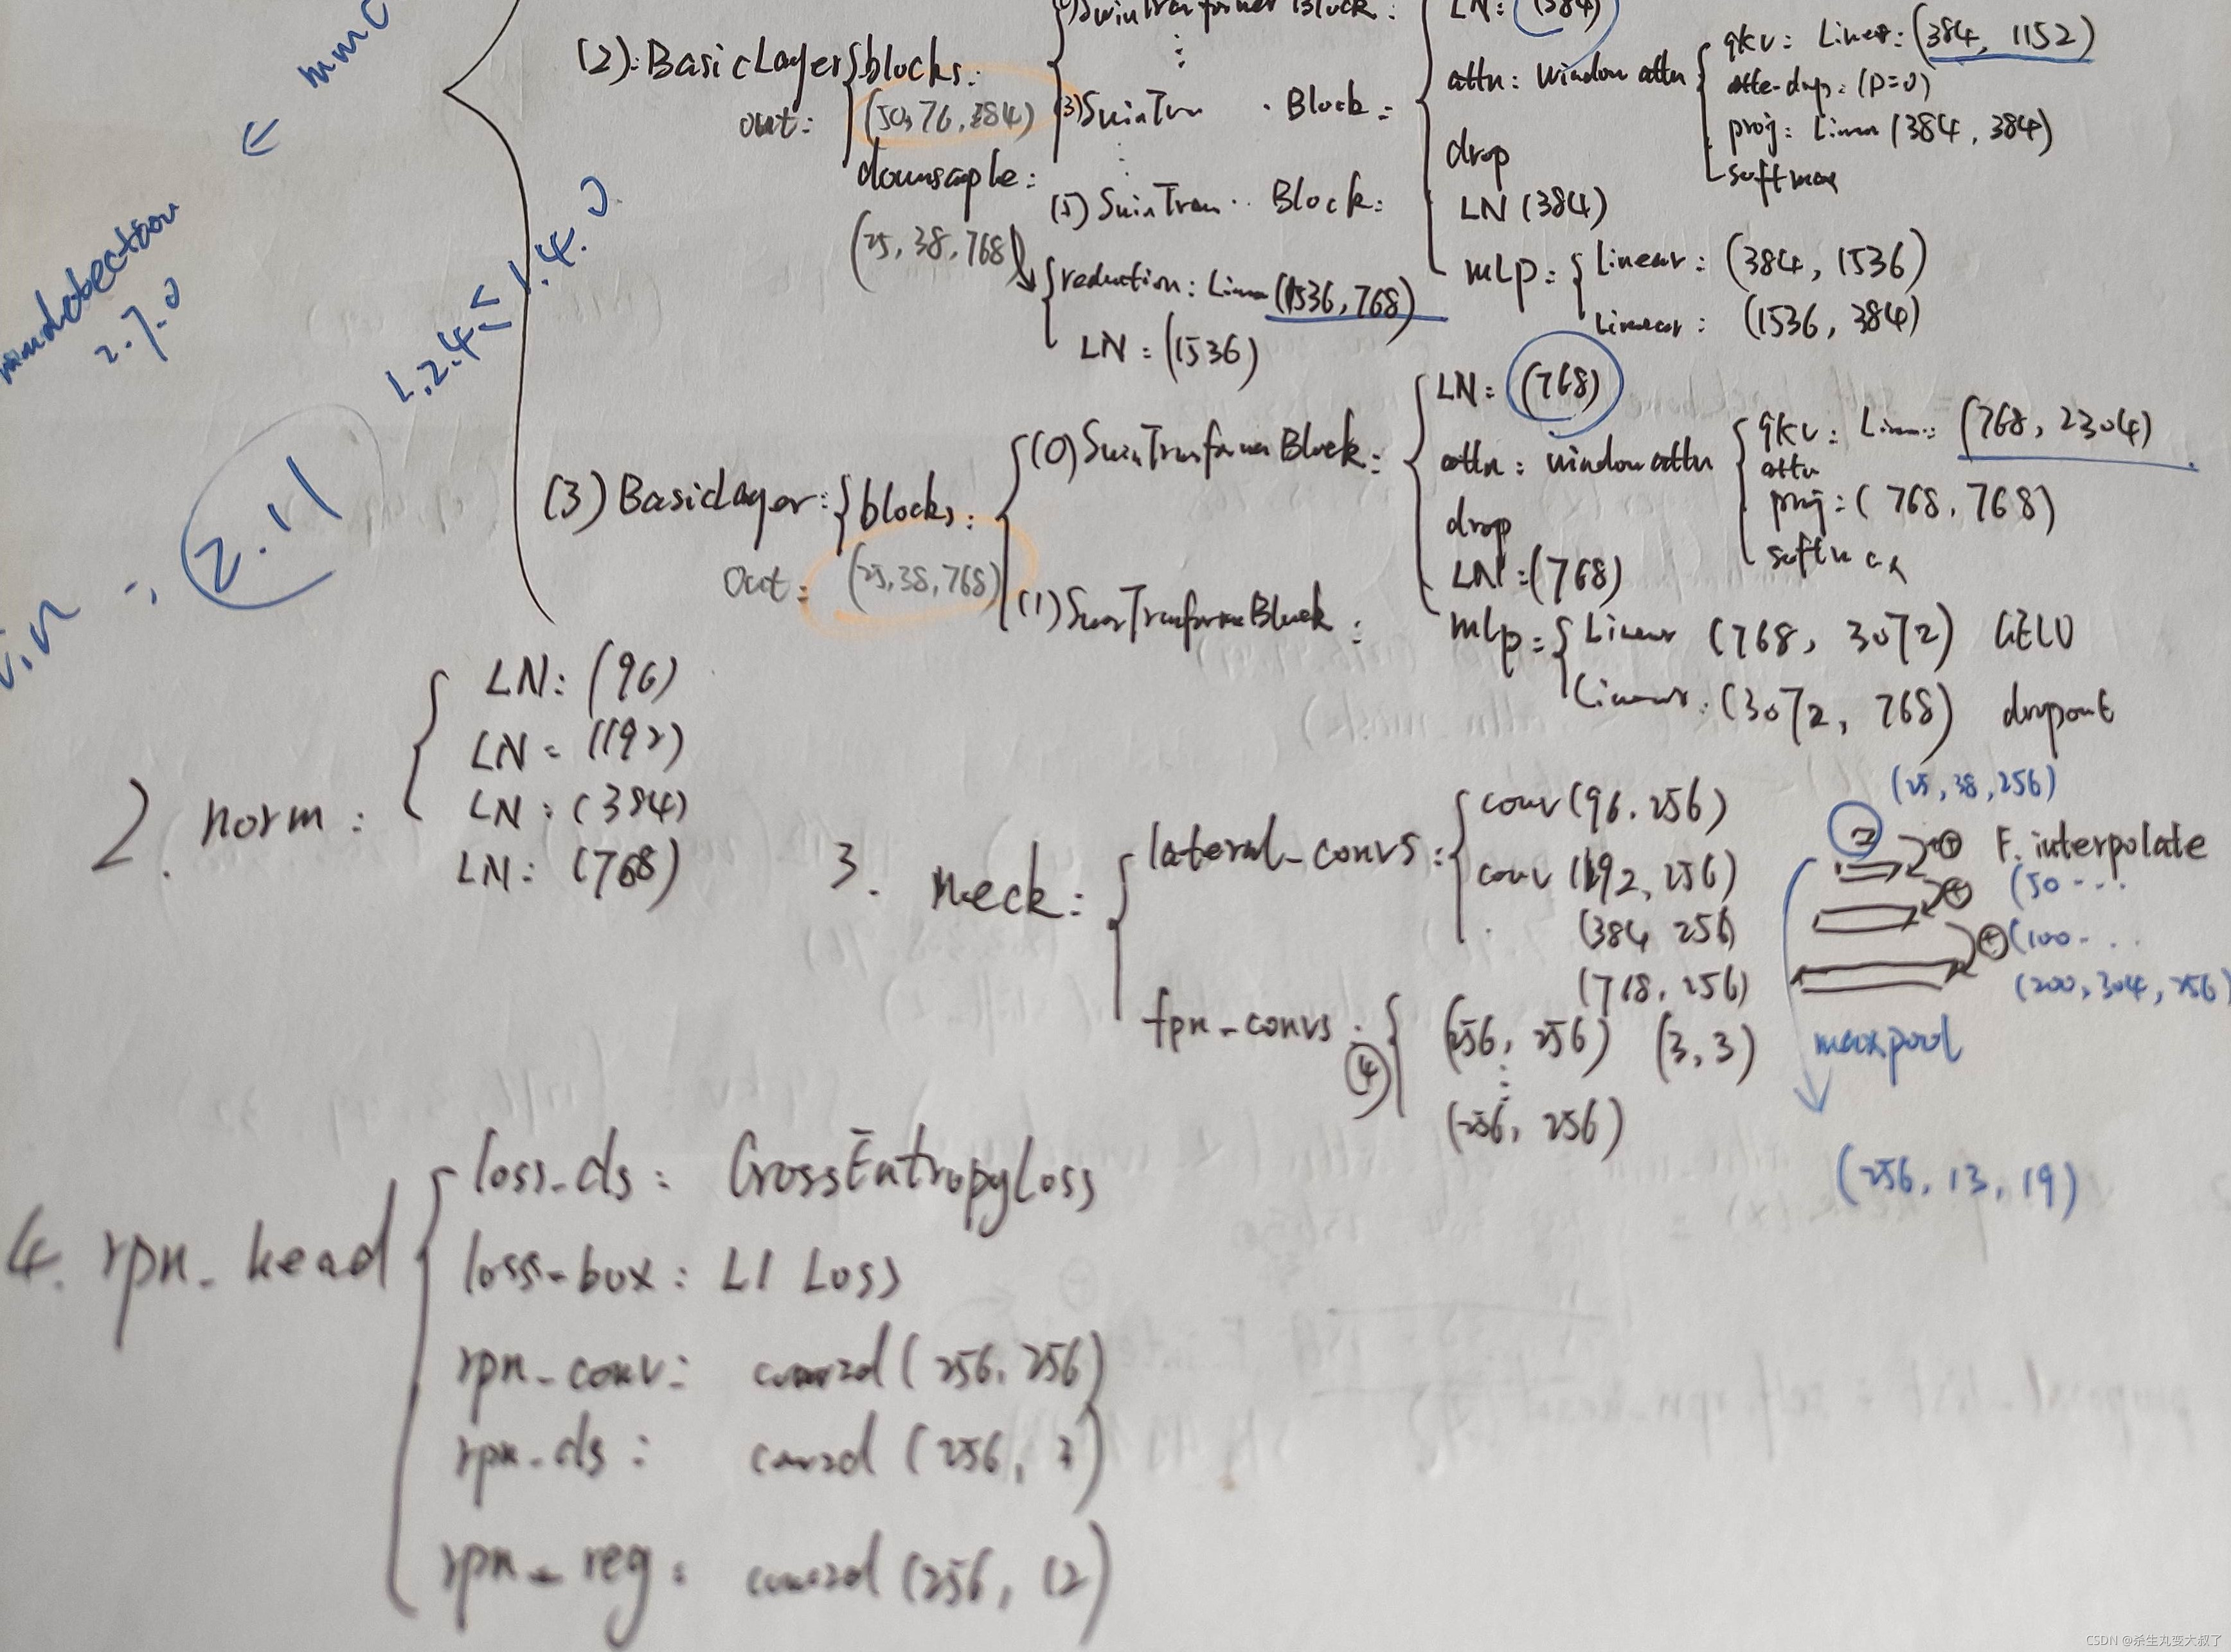 (2): BasicLayer { blocks:
out: (50, 76, 384)
downsaple:
(25, 38, 768)
SwinTranformer Block:
(3) SwinTran . Block:
(5) SwinTran .. Block:
LN: (384)
attn: Window attn
qkv: Linear: (384, 1152)
atte-drop: (p=0)
proj: Linear (384, 384)
softmax
drop
LN (384)
mlp: { Linear: (384, 1536)
Linear: (1536, 384)
{ reduction: Linear (1536, 768)
LN: (1536)
(3) BasicLayer: { blocks:
out: (25, 38, 768)
(0) SwinTransformerBlock:
(1) SwinTransformerBlock:
LN: (768)
attn: window attn
qkv: Linear: (768, 2304)
attn
proj: (768, 768)
softmax
drop
LN: (768)
mlp: { Linear (768, 3072) GELU
Linear: (3072, 768) dropout
1.2.4 ≤ 1.4.0
2.7.0
2.11
2. norm:
LN: (96)
LN: (192)
LN: (384)
LN: (768)
3. neck:
lateral_convs:
conv (96, 256)
conv (192, 256)
(384 256)
(768, 256)
fpn_convs:
④
(256, 256) (3, 3)
(256, 256)
(25, 38, 256)
2
F. interpolate
(50 - - -
(100 - . .
(200, 304, 256)
maxpool
(256, 13, 19)
4. rpn_head
loss_cls: CrossEntropyLoss
loss-box: L1 Loss
rpn_conv: conv2d (256, 256)
rpn_cls: conv2d (256, 3)
rpn_reg: conv2d (256, 12)
CSDN @杀生丸变大叔了